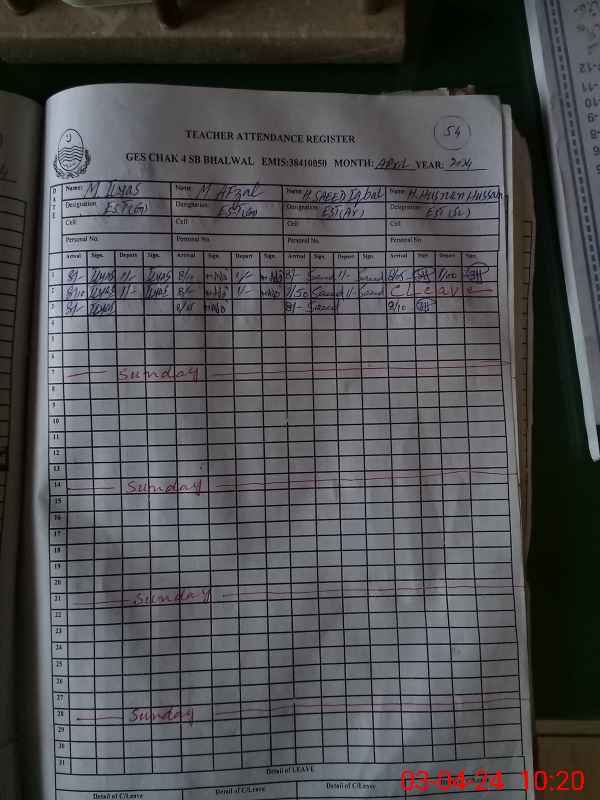 54
TEACHER ATTENDANCE REGISTER
GES CHAK 4 SB BHALWAL EMIS:38410050 MONTH: APRIL YEAR: 2024
DATE
Name: M Ilyas Name: M Afzal Name: H SAEED Iqbal Name: H. Husnan Hussain
Designation EST(G) Designation EST(G) Designation EST(Ar) Designation EST(Sc)
Cell Cell Cell Cell
Personal No. Personal No. Personal No. Personal No.
Arrival Sign. Depart Sign. Arrival Sign. Depart Sign. Arrival Sign. Depart Sign. Arrival Sign Depart Sign.
1 8/- Ilyas 1/- Ilyas 8/10 1/- 8/- Saeed 1/- Saeed 8/05 1/00
2 8/10 Ilyas 1/- Ilyas 8/10 1/- 7/50 Saeed 1/- Saeed C leave
3 8/- Ilyas 8/- Saeed 8/10
4
5
6
7 Sunday
8
9
10
11
12
13
14 Sunday
15
16
17
18
19
20
21 Sunday
22
23
24
25
26
27
28 Sunday
29
30
31
Detail of LEAVE
Detail of C/Leave Detail of C/Leave Detail of C/Leave Detail of C/Leave
03-04-24 10:20
-12
-11
-10
-9
-8